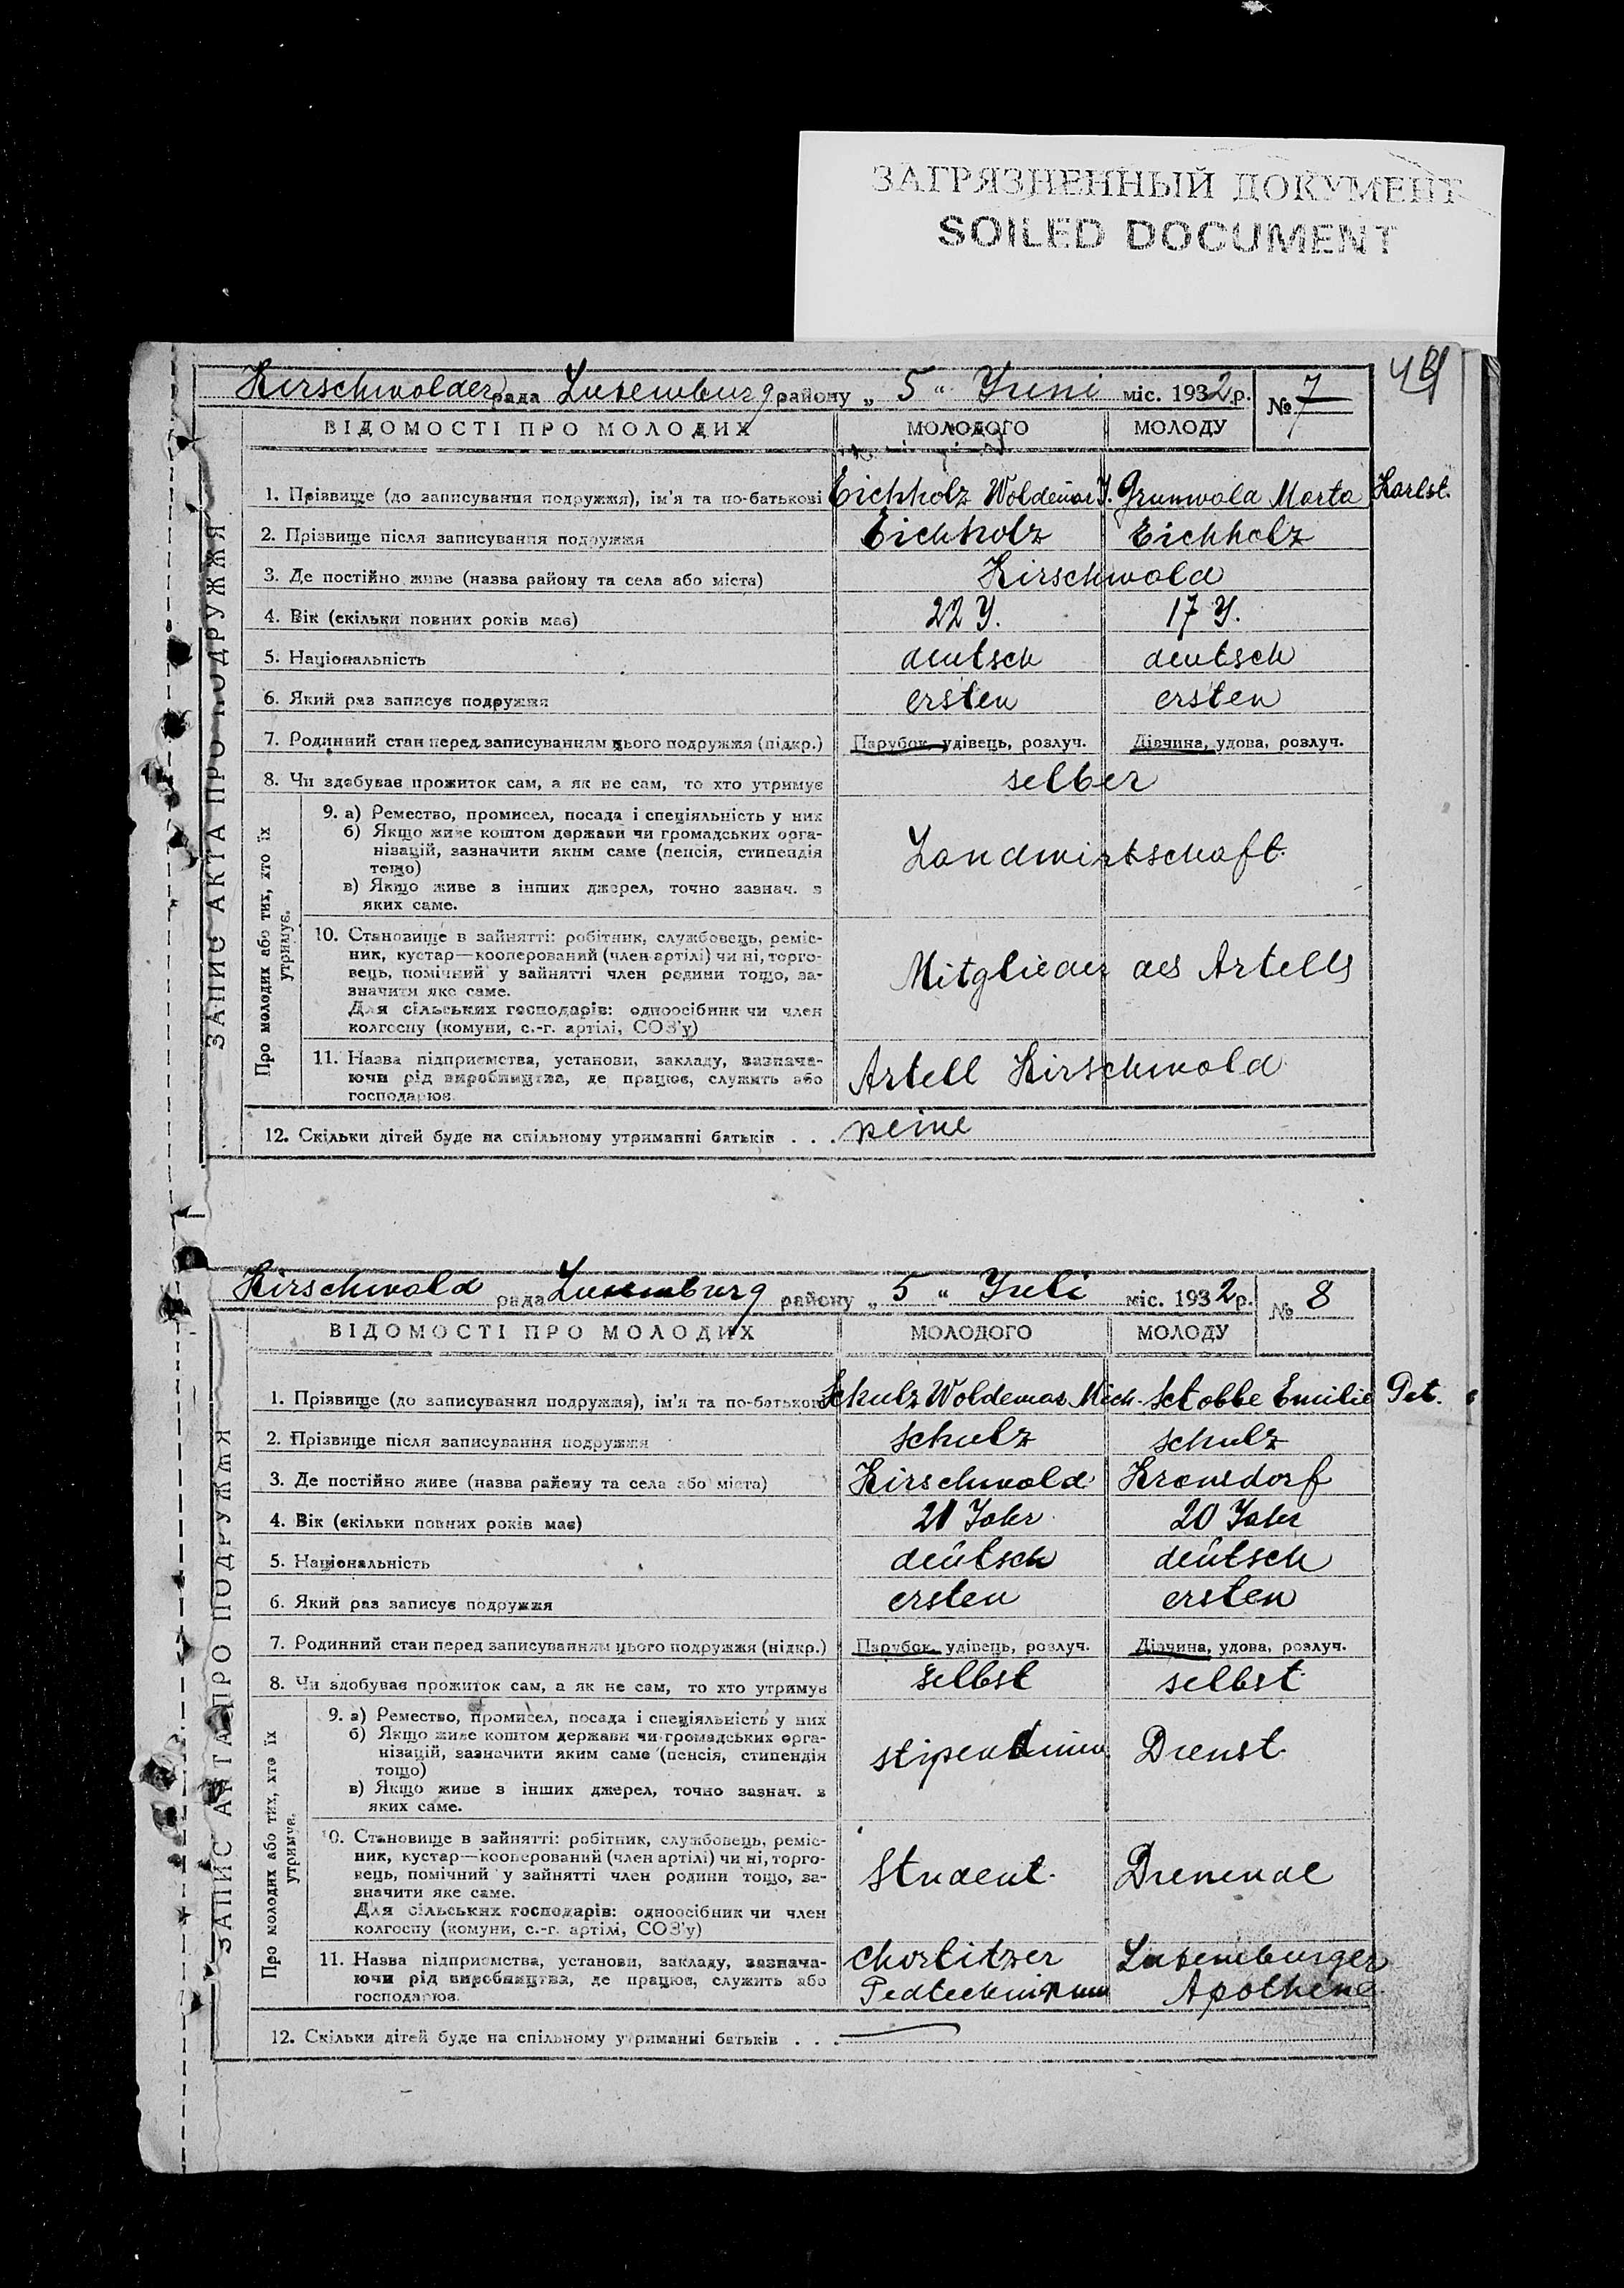 ЗАГРЯЗНЕННЫЙ ДОКУМЕНТ
SOILED DOCUMENT
Kirschwolder рада Luxemburg району „ 5 “ Yuni міс. 1932 р. № 7
ВІДОМОСТІ ПРО МОЛОДИХ МОЛОДОГО МОЛОДУ
ЗАПИС АКТА ПРО ПОДРУЖЖЯ
1. Прізвище (до записування подружжя), ім'я та по-батькові Eichholz Woldemar Y. Grunwald Marta Karlst.
2. Прізвище після записування подружжя Eichholz Eichholz
3. Де постійно живе (назва району та села або міста) Kirschwald
4. Вік (скільки повних років має) 22 Y. 17 Y.
5. Національність deutsch deutsch
6. Який раз записує подружжя ersten ersten
7. Родинний стан перед записуванням цього подружжя (підкр.) Парубок, удівець, розлуч. Дівчина, удова, розлуч.
8. Чи здобував прожиток сам, а як не сам, то хто утримує selber
Про молодих або тих, хто їх
утримує.
9. а) Ремество, промисел, посада і спеціяльність у них
б) Якщо живе коштом держави чи громадських орга-
нізацій, зазначити яким саме (пенсія, стипендія
тощо)
в) Якщо живе з інших джерел, точно зазнач. з
яких саме.
Landwirtschaft.
10. Становище в зайнятті: робітник, службовець, реміс-
ник, кустар—кооперований (член артілі) чи ні, торго-
вець, помічний у зайнятті член родини тощо, за-
значити яке саме.
Для сільських господарів: одноосібник чи член
колгоспу (комуни, с.-г. артілі, СОЗ'у)
Mitglieder des Artells
11. Назва підприємства, установи, закладу, зазнача-
ючи рід виробництва, де працює, служить або
господарює
Artell Kirschwald
12. Скільки дітей буде на спільному утриманні батьків . . . keine
Kirschwald рада Luxemburg району „ 5 “ Yuli міс. 1932 р. № 8
ВІДОМОСТІ ПРО МОЛОДИХ МОЛОДОГО МОЛОДУ
ЗАПИС АКТА ПРО ПОДРУЖЖЯ
1. Прізвище (до записування подружжя), ім'я та по-батькові Schulz Woldemar Mich. Stobbe Emilie Pet.
2. Прізвище після записування подружжя Schulz Schulz
3. Де постійно живе (назва району та села або міста) Kirschwald Kronsdorf
4. Вік (скільки повних років має) 21 Jahr 20 Jahr
5. Національність deutsch deutsch
6. Який раз записує подружжя ersten ersten
7. Родинний стан перед записуванням цього подружжя (підкр.) Парубок, удівець, розлуч. Дівчина, удова, розлуч.
8. Чи здобував прожиток сам, а як не сам, то хто утримує selbst selbst
Про молодих або тих, хто їх
утримує.
9. а) Ремество, промисел, посада і спеціяльність у них
б) Якщо живе коштом держави чи громадських орга-
нізацій, зазначити яким саме (пенсія, стипендія
тощо)
в) Якщо живе з інших джерел, точно зазнач. з
яких саме.
Stipendium Dienst
10. Становище в зайнятті: робітник, службовець, реміс-
ник, кустар—кооперований (член артілі) чи ні, торго-
вець, помічний у зайнятті член родини тощо, за-
значити яке саме.
Для сільських господарів: одноосібник чи член
колгоспу (комуни, с.-г. артілі, СОЗ'у)
Student. Dienende
11. Назва підприємства, установи, закладу, зазнача-
ючи рід виробництва, де працює, служить або
господарює.
Chortitzer Luxemburger
Pedtechnikum Apotheke
12. Скільки дітей буде на спільному утриманні батьків . . . —